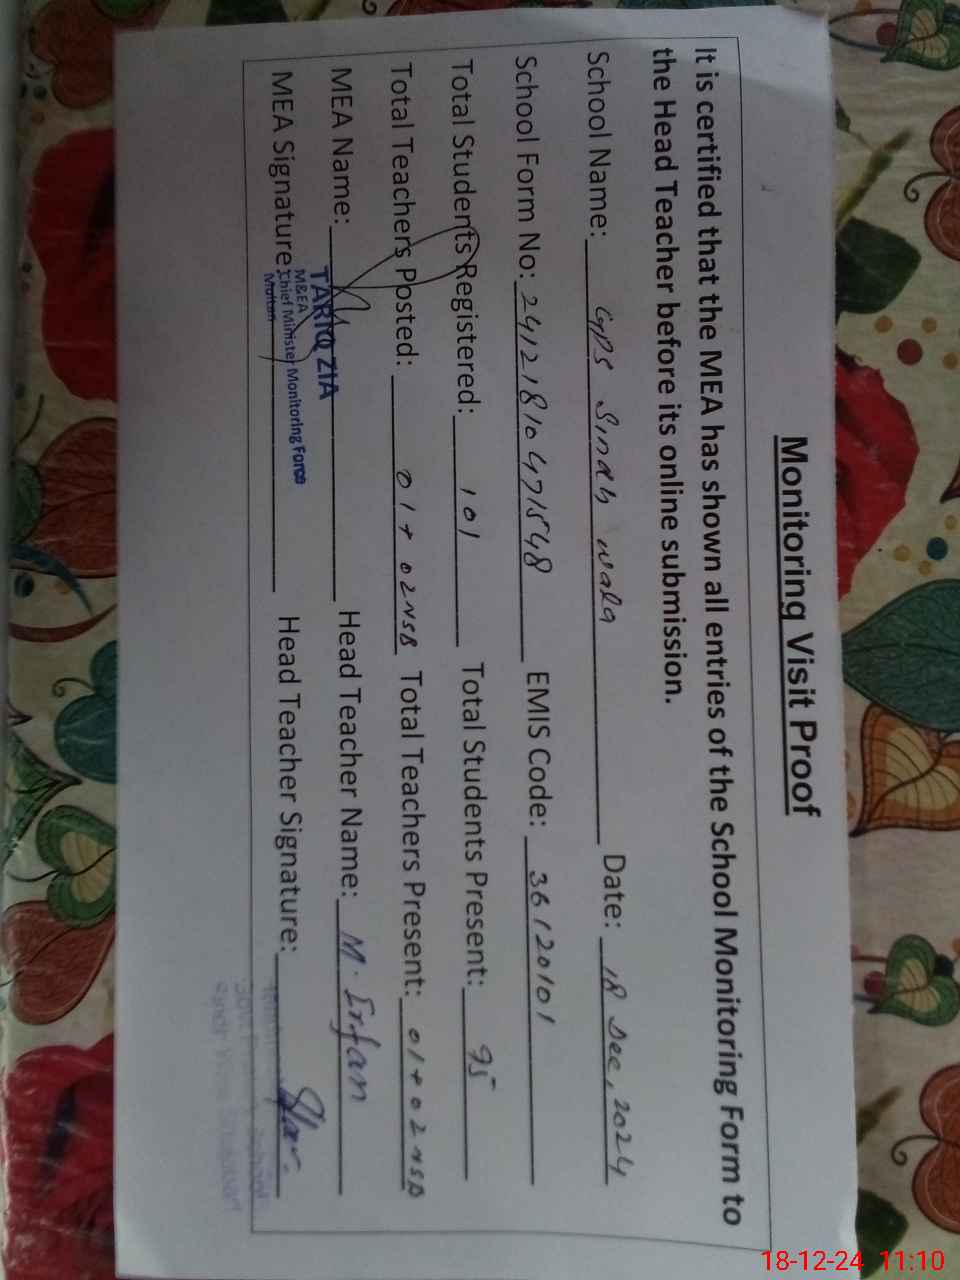 Monitoring Visit Proof
It is certified that the MEA has shown all entries of the School Monitoring Form to
the Head Teacher before its online submission.
School Name: GPS Sindh wala Date: 18 Dec, 2024
School Form No: 24121810471548 EMIS Code: 36120101
Total Students Registered: 101 Total Students Present: 95
Total Teachers Posted: 01 + 02 NSB Total Teachers Present: 01 + 02 NSB
MEA Name: TARIQ ZIA Head Teacher Name: M. Irfan
MEA Signature: Head Teacher Signature:
M&EA
Chief Minister Monitoring Force
Multan
18-12-24 11:10